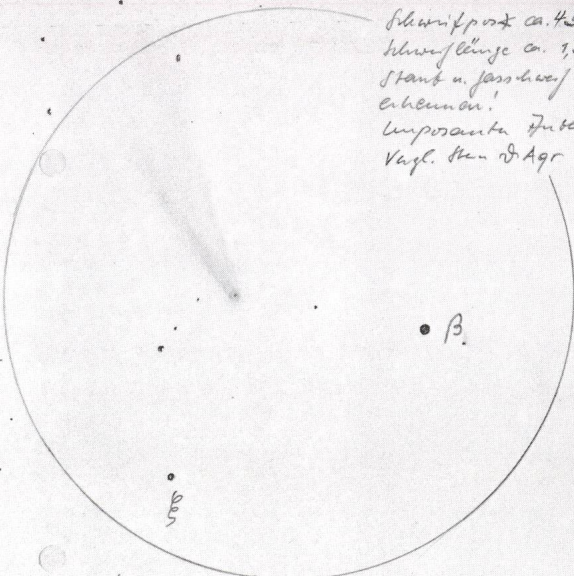 Schweifposx ca. 4
Schweiflänge ca. 1,
Staub u. Gasschweif
erkennen!
Imposanter
Vergl. Stern ϑ Aqr
β
ξ